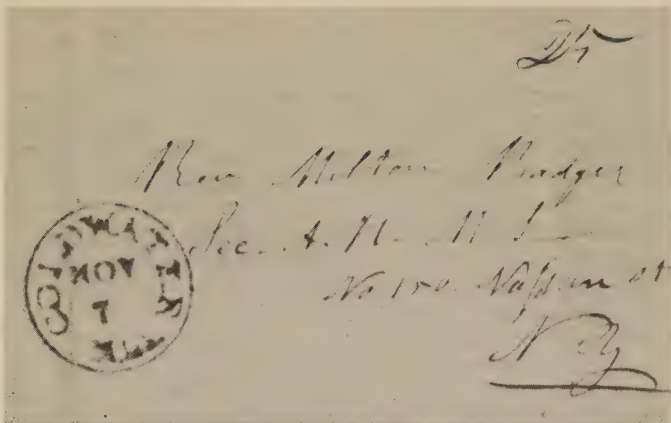 25
Rev Milton Badger
Sec. A. H. M. S
No 150 Nassau st
N Y
COLDWATER
NOV
7